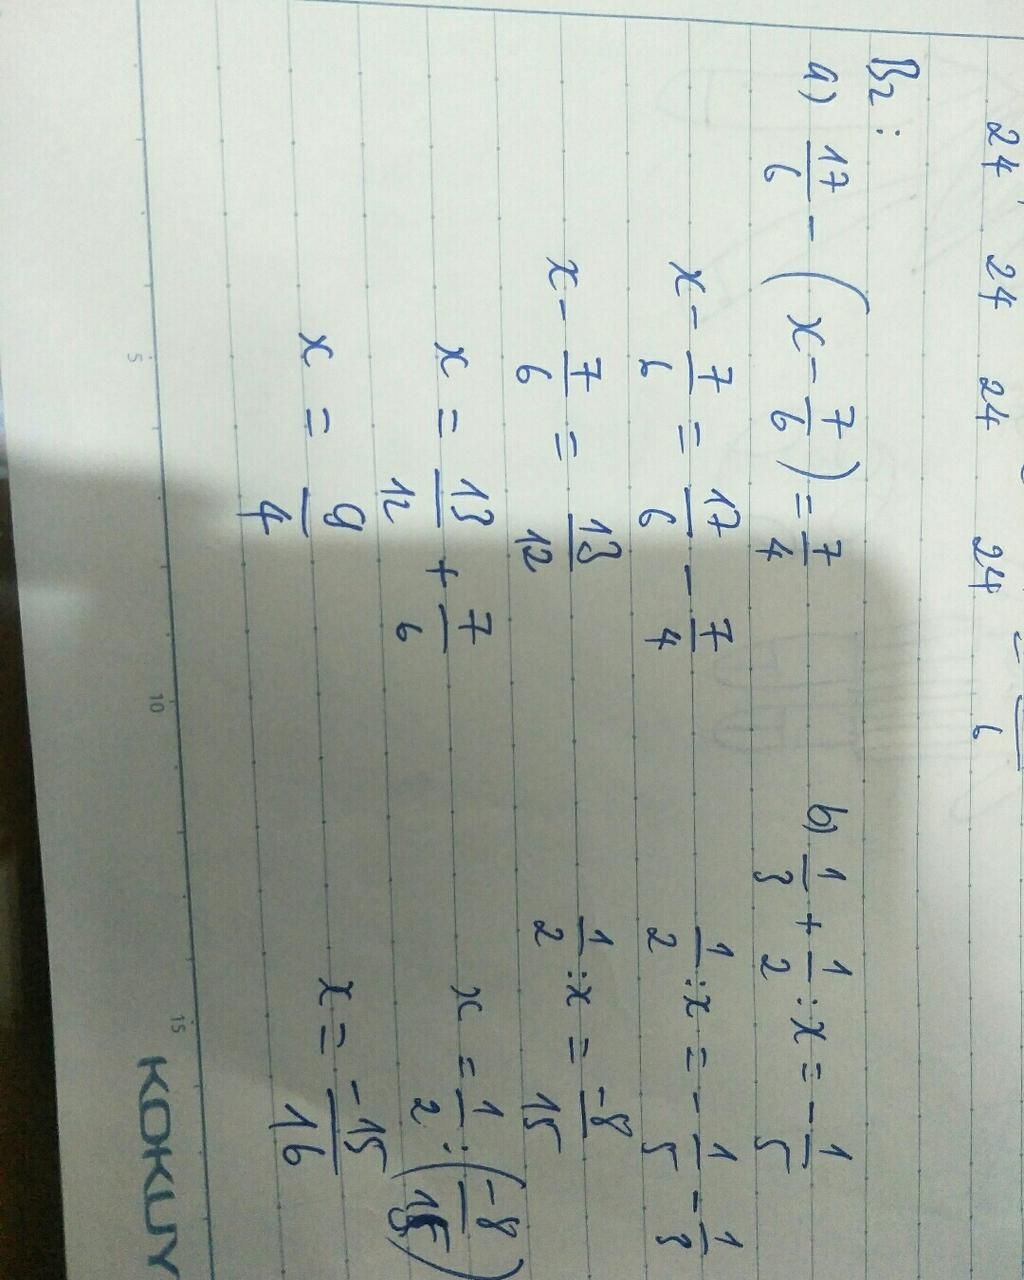 24 24 24 24 6
B2:
a) 17/6 - (x - 7/6) = 7/4
x - 7/6 = 17/6 - 7/4
x - 7/6 = 13/12
x = 13/12 + 7/6
x = 9/4
b) 1/3 + 1/2 : x = -1/5
1/2 : x = -1/5 - 1/3
1/2 : x = -8/15
x = 1/2 : (-8/15)
x = -15/16
5 10 15
KOKUY